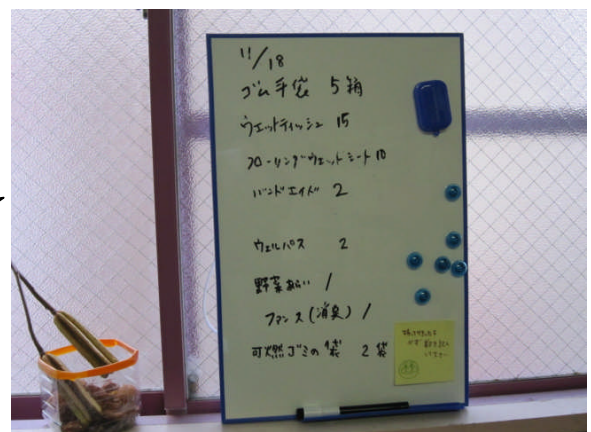 11/18
ゴム手袋 5箱
ウェットティッシュ 15
フローリングウェットシート 10
バンドエイド 2
ウェルパス 2
野菜あらい 1
(消臭) 1
可燃ゴミの袋 2袋